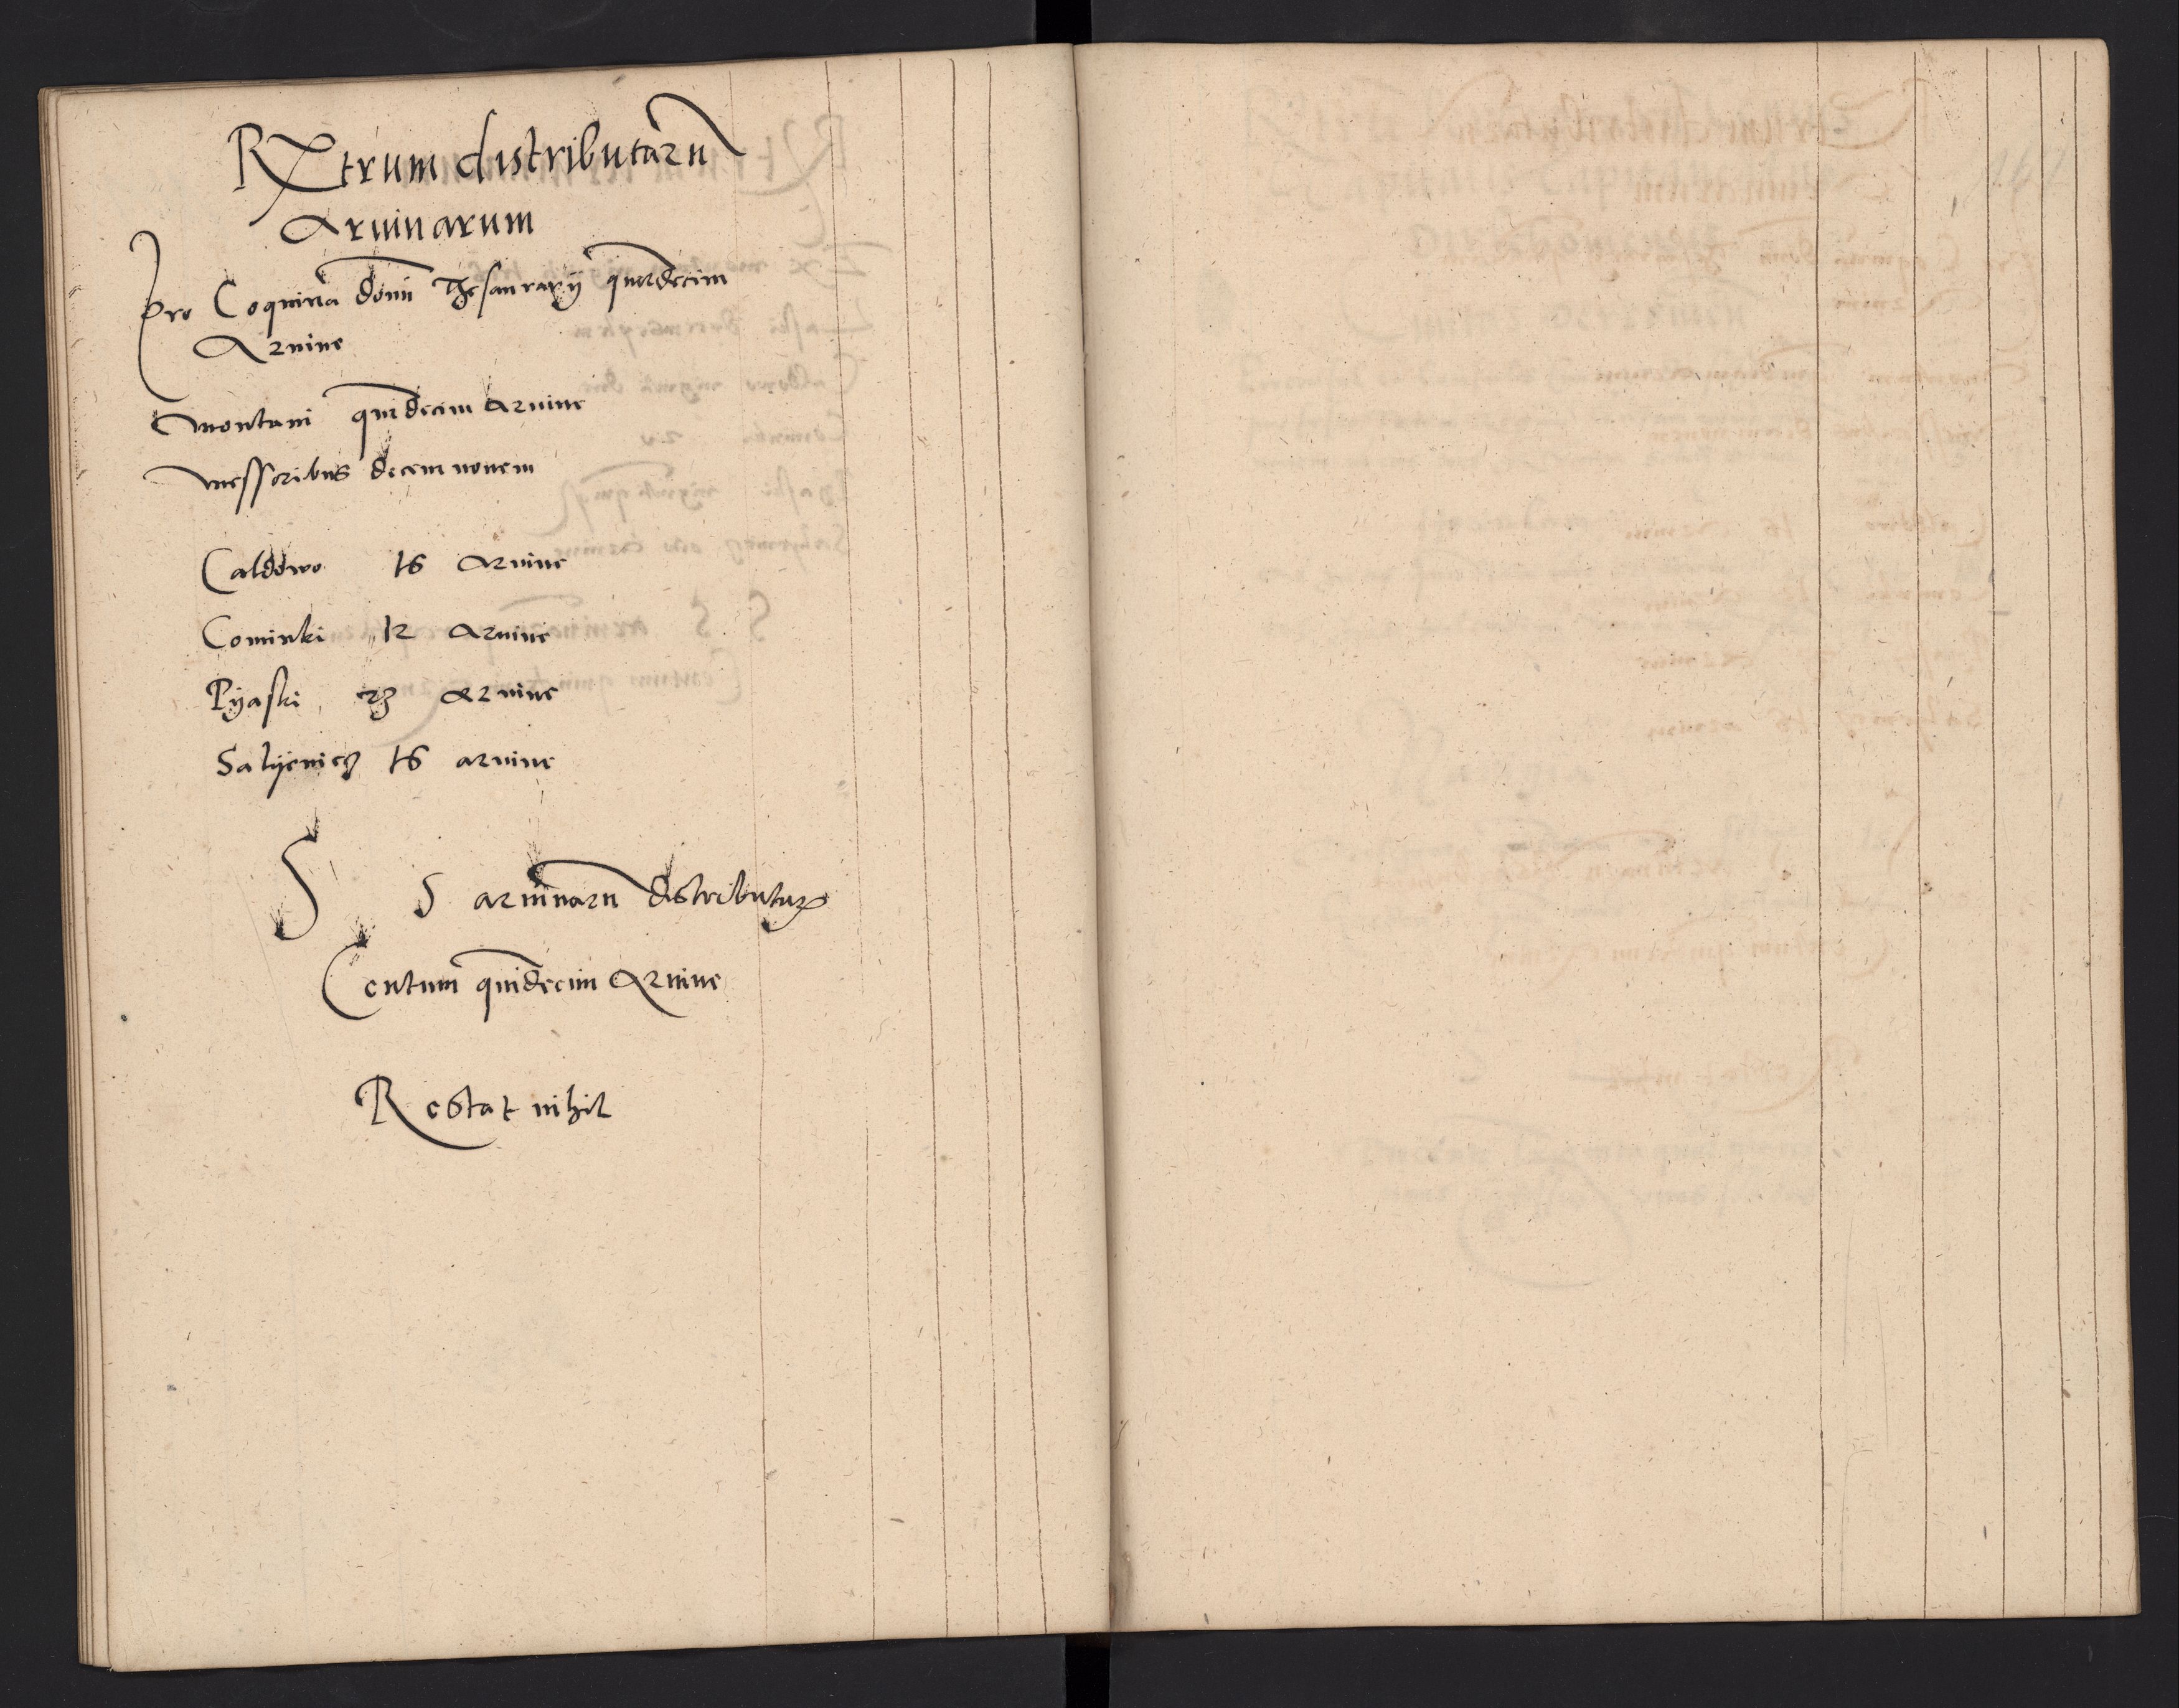 Rxtrum distributaru
Aruinarum
Pro Coquina domi Thesaurarij quatordecim
Aruine
Montani quindecim Aruine
Messoribus decem novem
Caldowo 16 Aruine
Cominki 12 Aruine
Pyaski 23 Aruine
Salyenicz 16 aruine
S S aruinaru distributar
Centum quindecim Aruine
Restat nihil